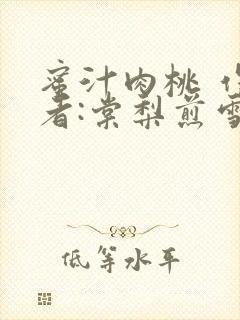 蜜汁肉桃
者:棠梨煎雪
低等水平